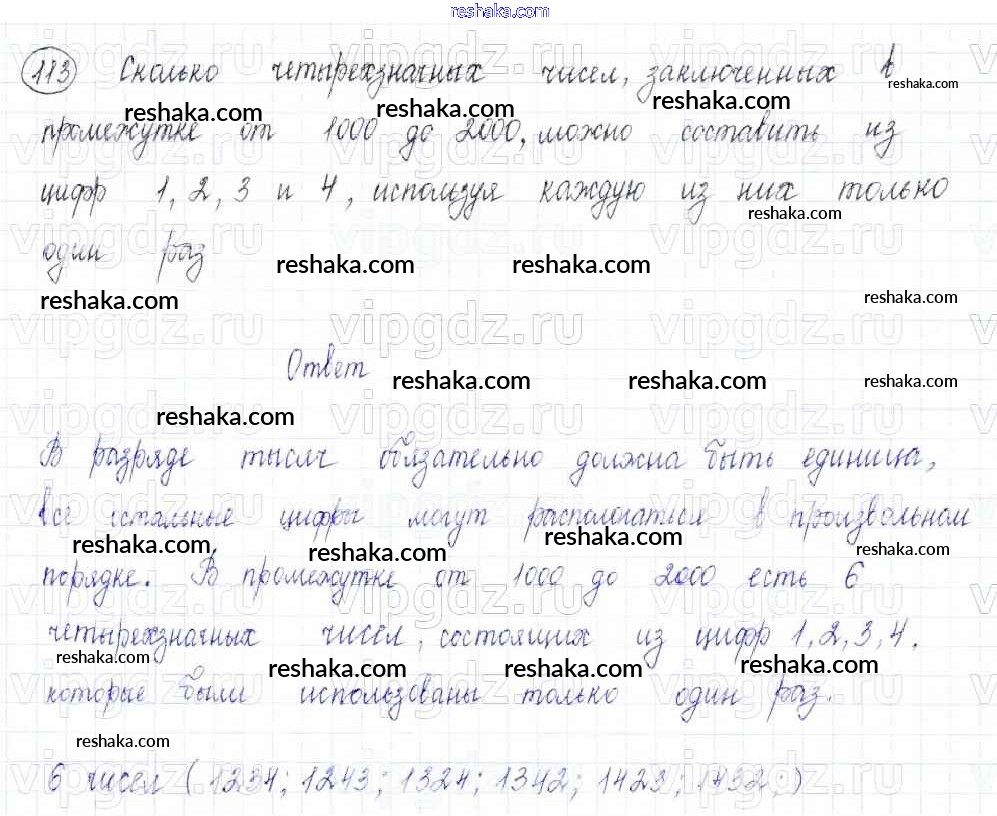 reshaka.com
113 Сколько четырехзначных чисел, заключенных в
промежутке от 1000 до 2000, можно составить из
цифр 1, 2, 3 и 4, используя каждую из них только
один раз
Ответ
В разряде тысяч обязательно должна быть единица,
все остальные цифры могут распологаться в произвольном
порядке. В промежутке от 1000 до 2000 есть 6
четырехзначных чисел, состоящих из цифр 1, 2, 3, 4.
которые были использованы только один раз.
6 чисел (1234; 1243; 1324; 1342; 1423; 1432;)